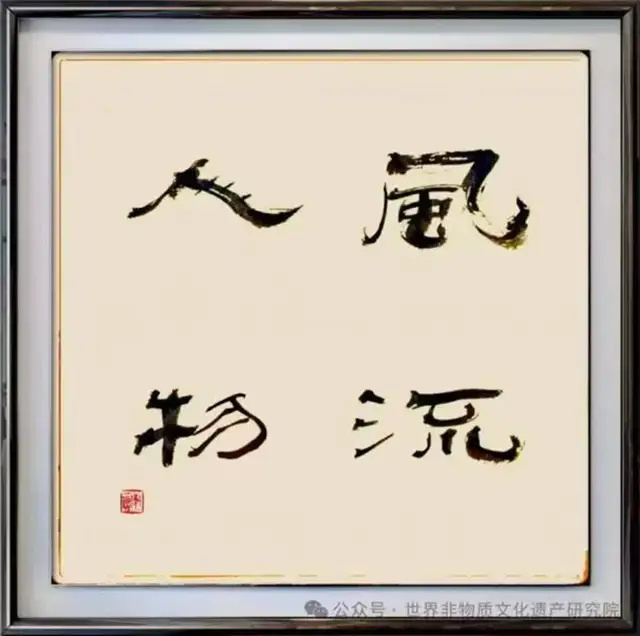 風流
人物
公众号·世界非物质文化遗产研究院